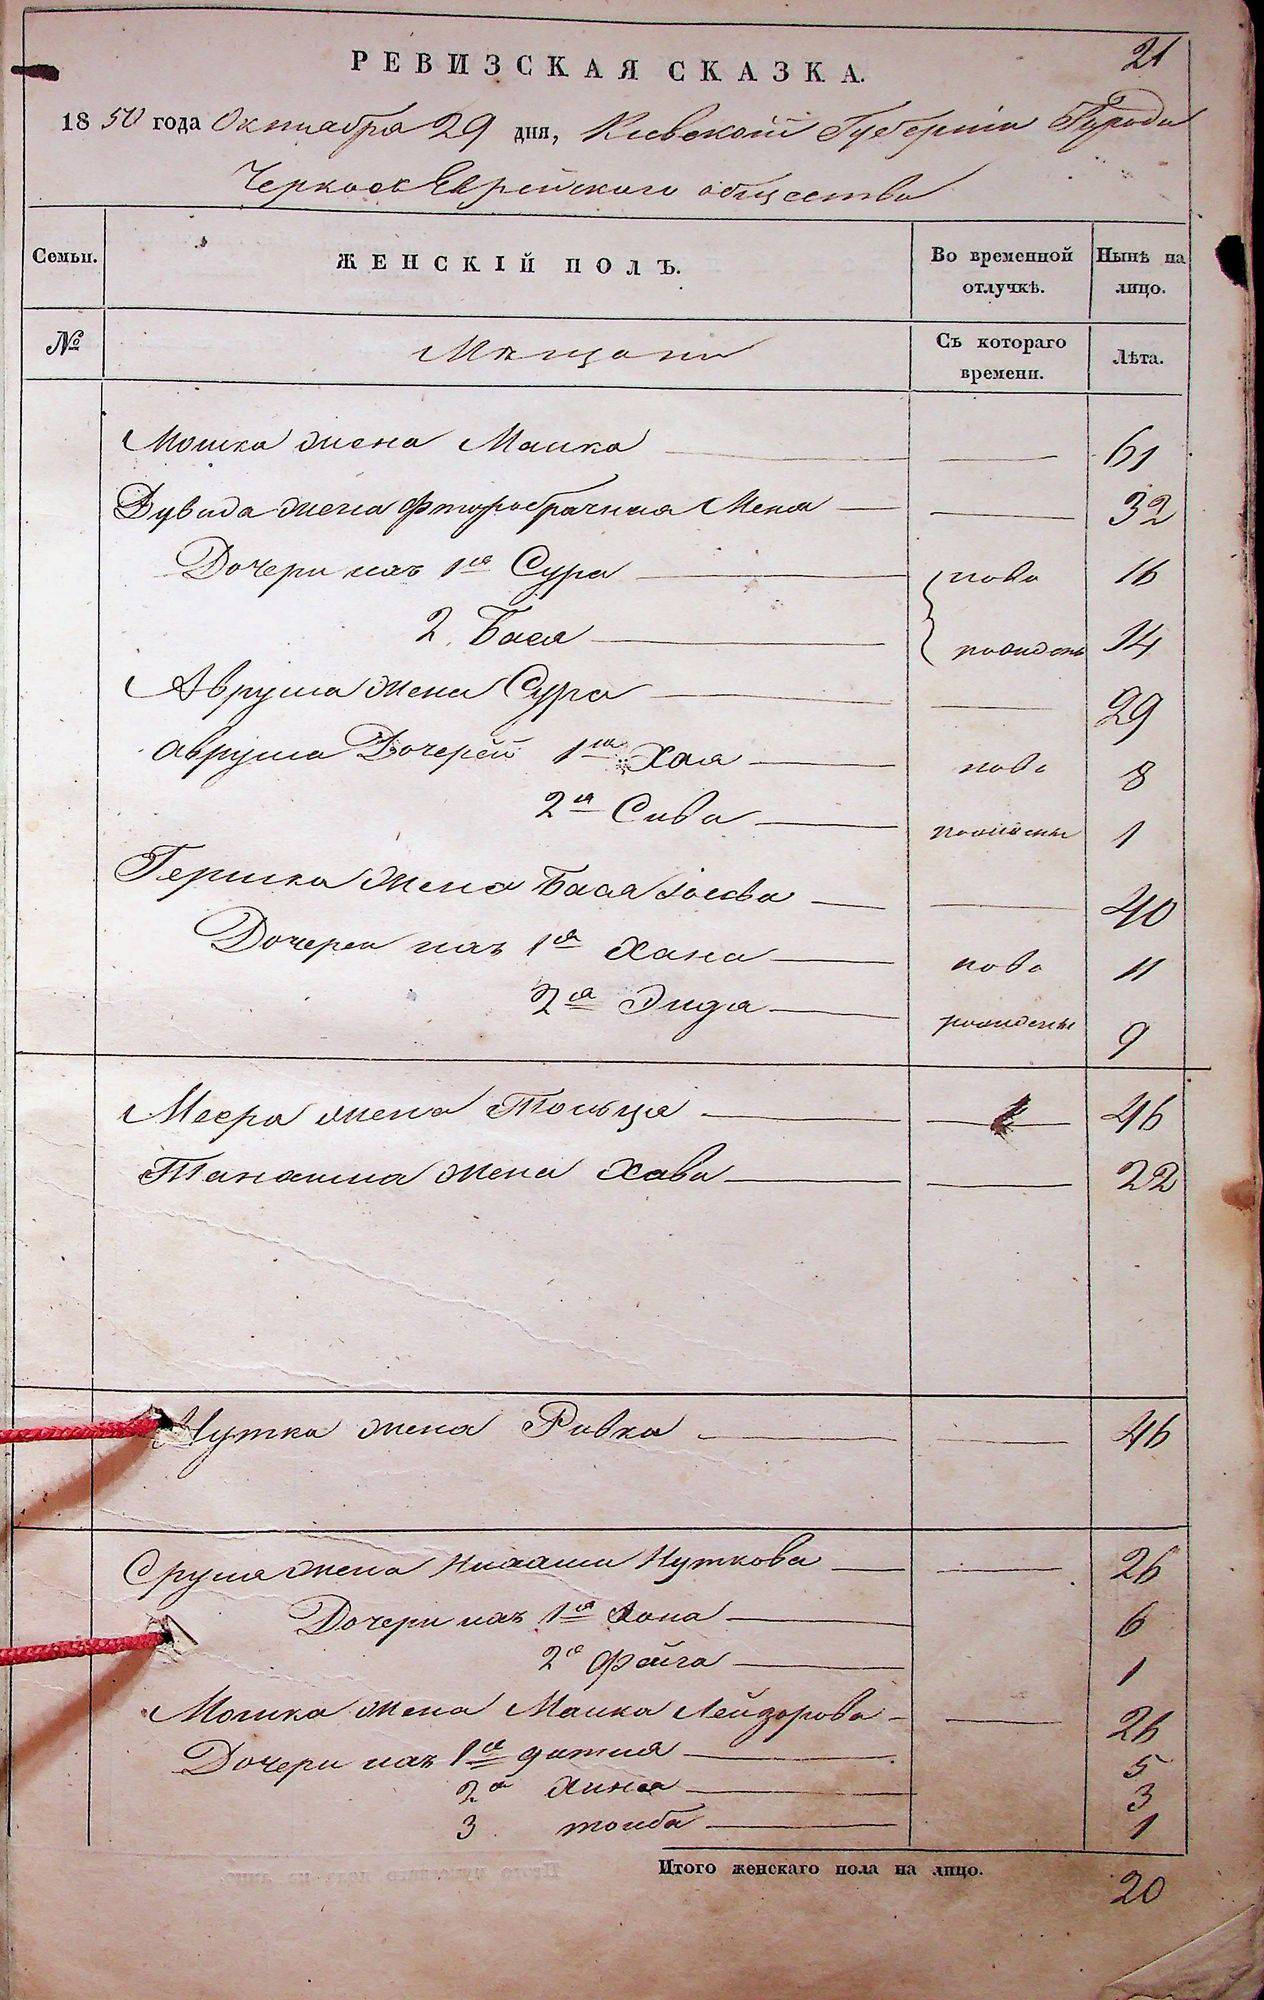 21
РЕВИЗСКАЯ СКАЗКА.
1850 года Октиабра 29 дня, Киевской Губернiи Города
Черкас Еврейского общества
Семьи. ЖЕНСКІЙ ПОЛЪ. Во временной отлучкѣ. Нынѣ на лицо.
№ Мещани Съ котораго времени. Лѣта.
Мошка жена Маика 61
Дувида жена фторобрачная Меня 32
Дочери ихъ 1ая Сура ново 16
2. Бася 14
Аврума жена Сура 29
Аврума Дочерей 1ая Хая ново 8
2ая Сива 1
Гершка жена Бася Iосева 40
Дочереи ихъ 1ая Хана ново 11
2ая Энда 9
Меера жена Тольця 46
Танхима жена Хава 22
Нутка жена Ривка 46
Срула жена Нуткова 26
Дочери ихъ 1ая Хона 6
2а Файга 1
Мошка жена Маика Лейзорова 26
Дочери ихъ 1а 5
2а Хина 3
3 тоиба 1
Итого женскаго пола на лицо.
20